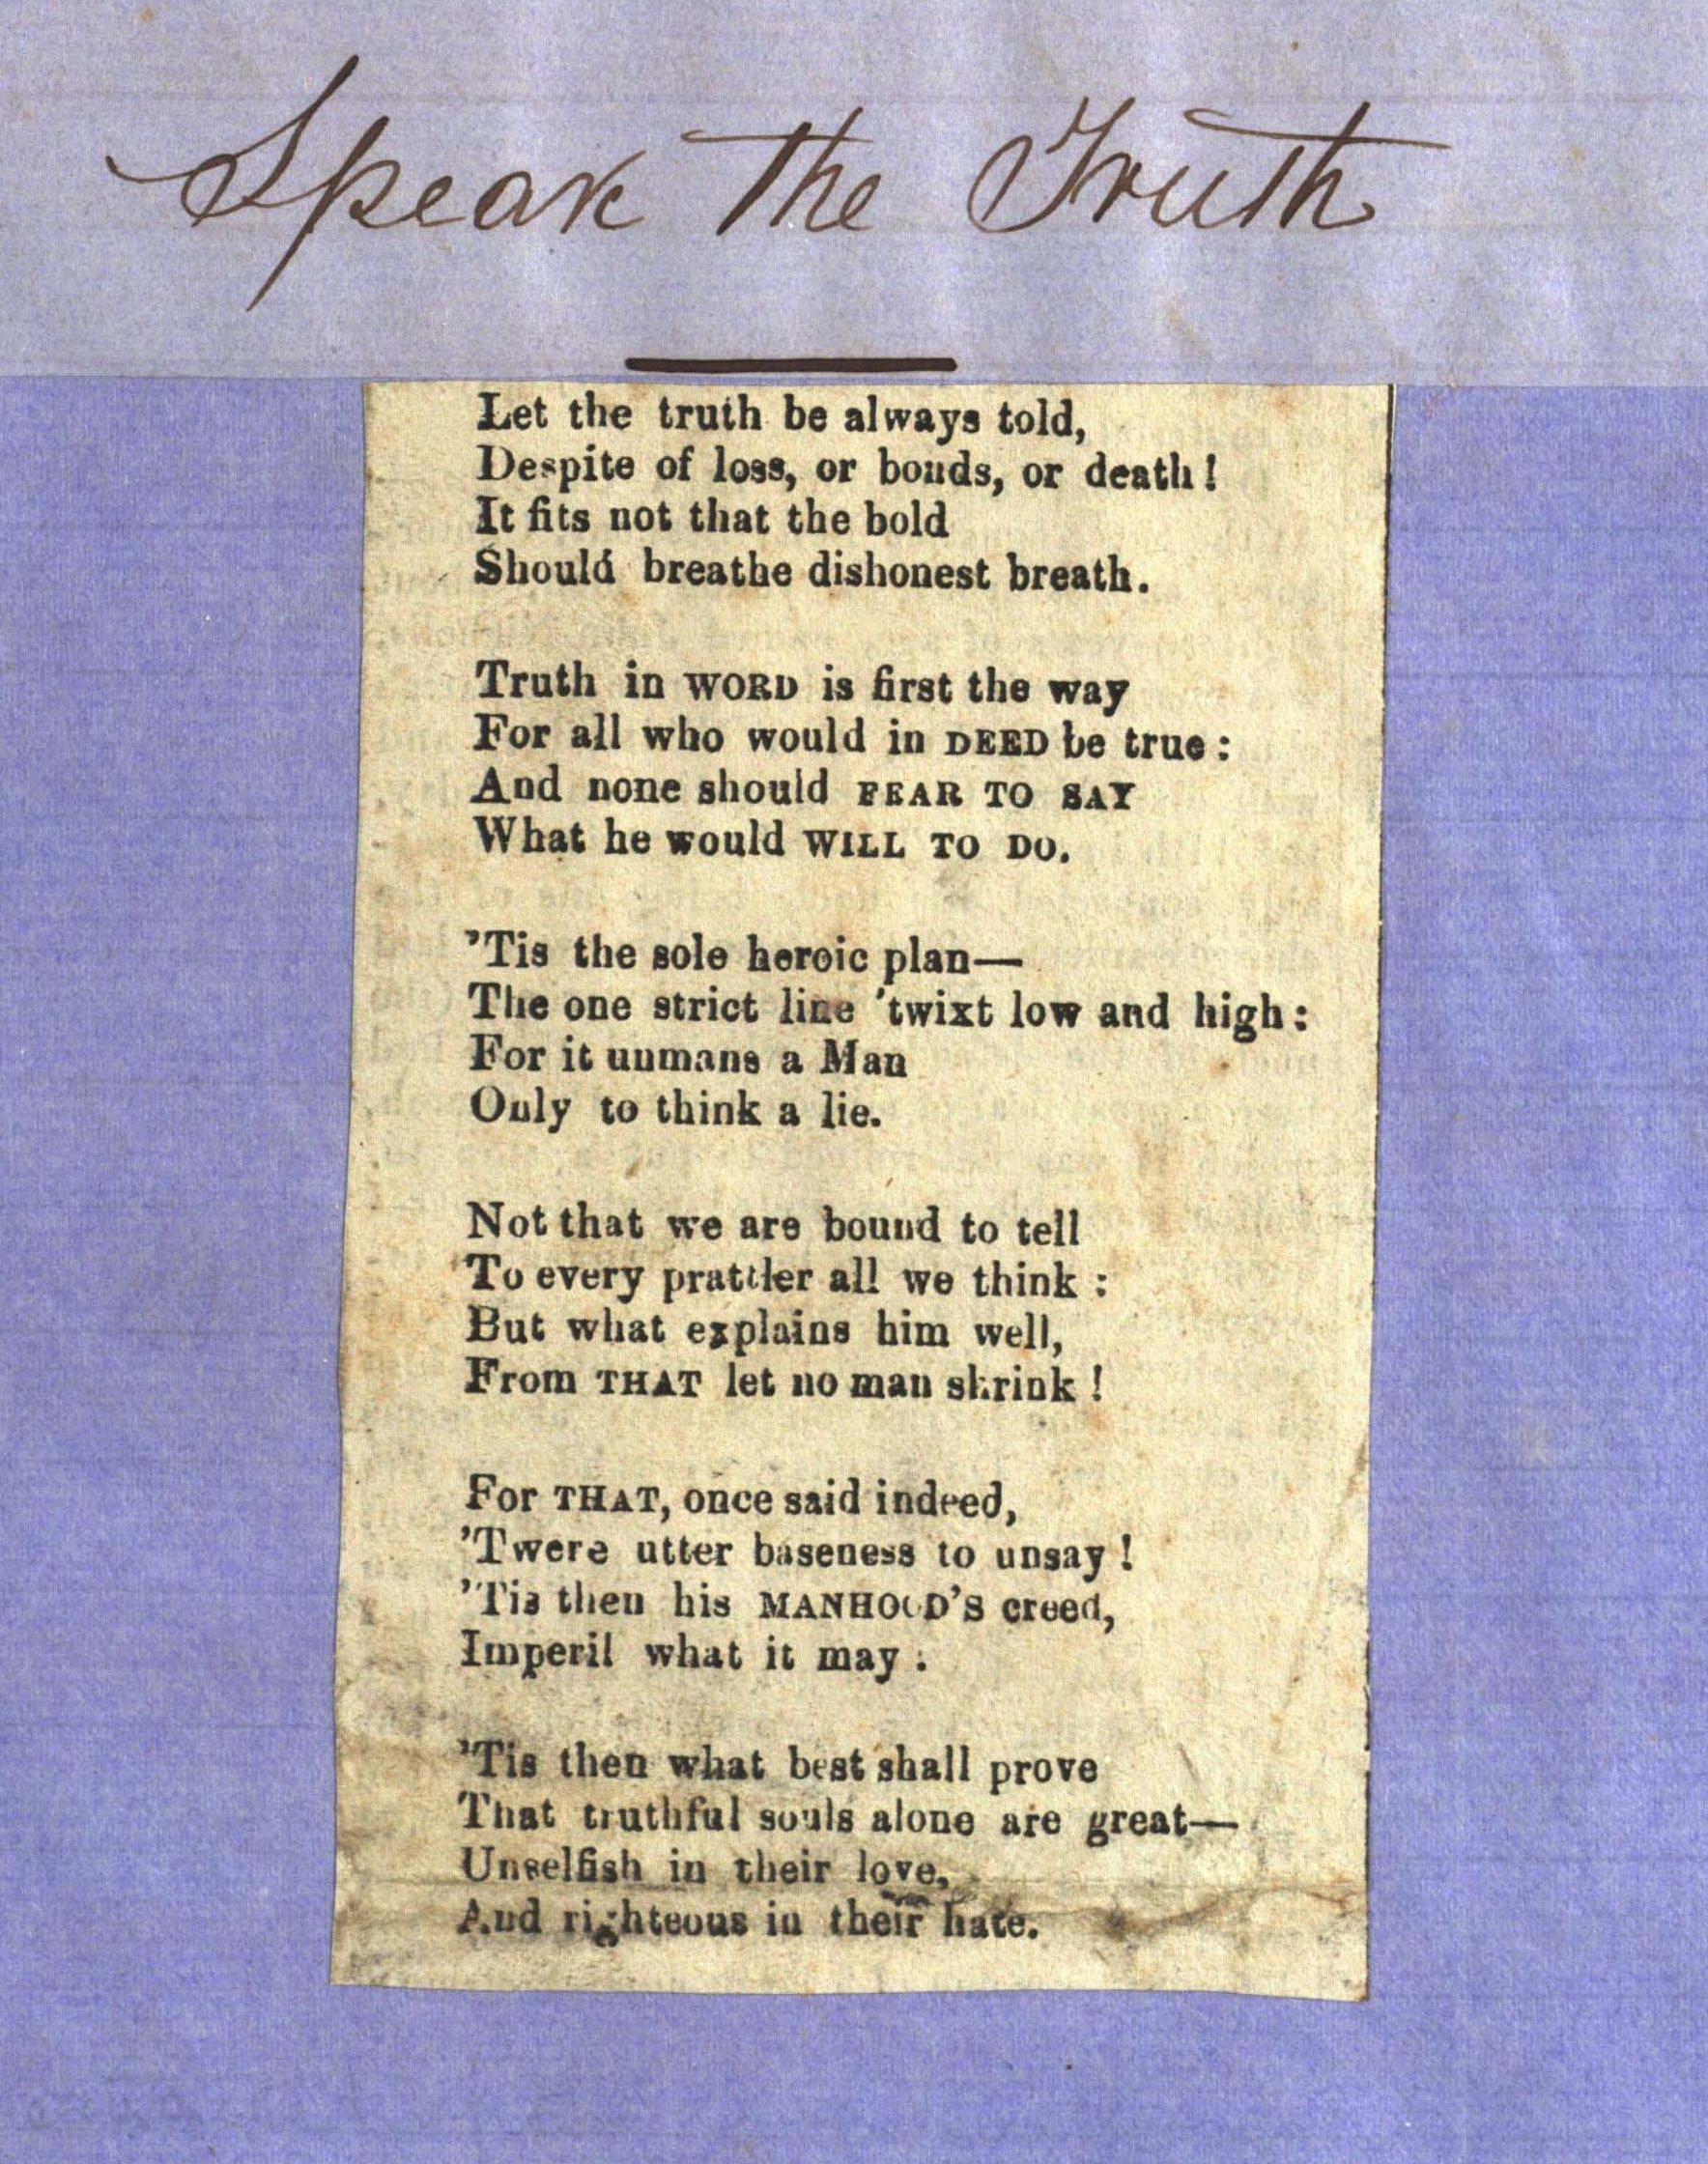 Speak the Truth
Let the truth be always told,
Despite of loss, or bonds, or death!
It fits not that the bold
Should breathe dishonest breath.
Truth in WORD is first the way
For all who would in DEED be true:
And none should FEAR TO SAY
What he would WILL TO DO.
'Tis the sole heroic plan—
The one strict line 'twixt low and high:
For it unmans a Man
Only to think a lie.
Not that we are bound to tell
To every prattler all we think:
But what explains him well,
From THAT let no man shrink!
For THAT, once said indeed,
'Twere utter baseness to unsay!
'Tis then his MANHOOD'S creed,
Imperil what it may:
'Tis then what best shall prove
That truthful souls alone are great—
Unselfish in their love,
And righteous in their hate.